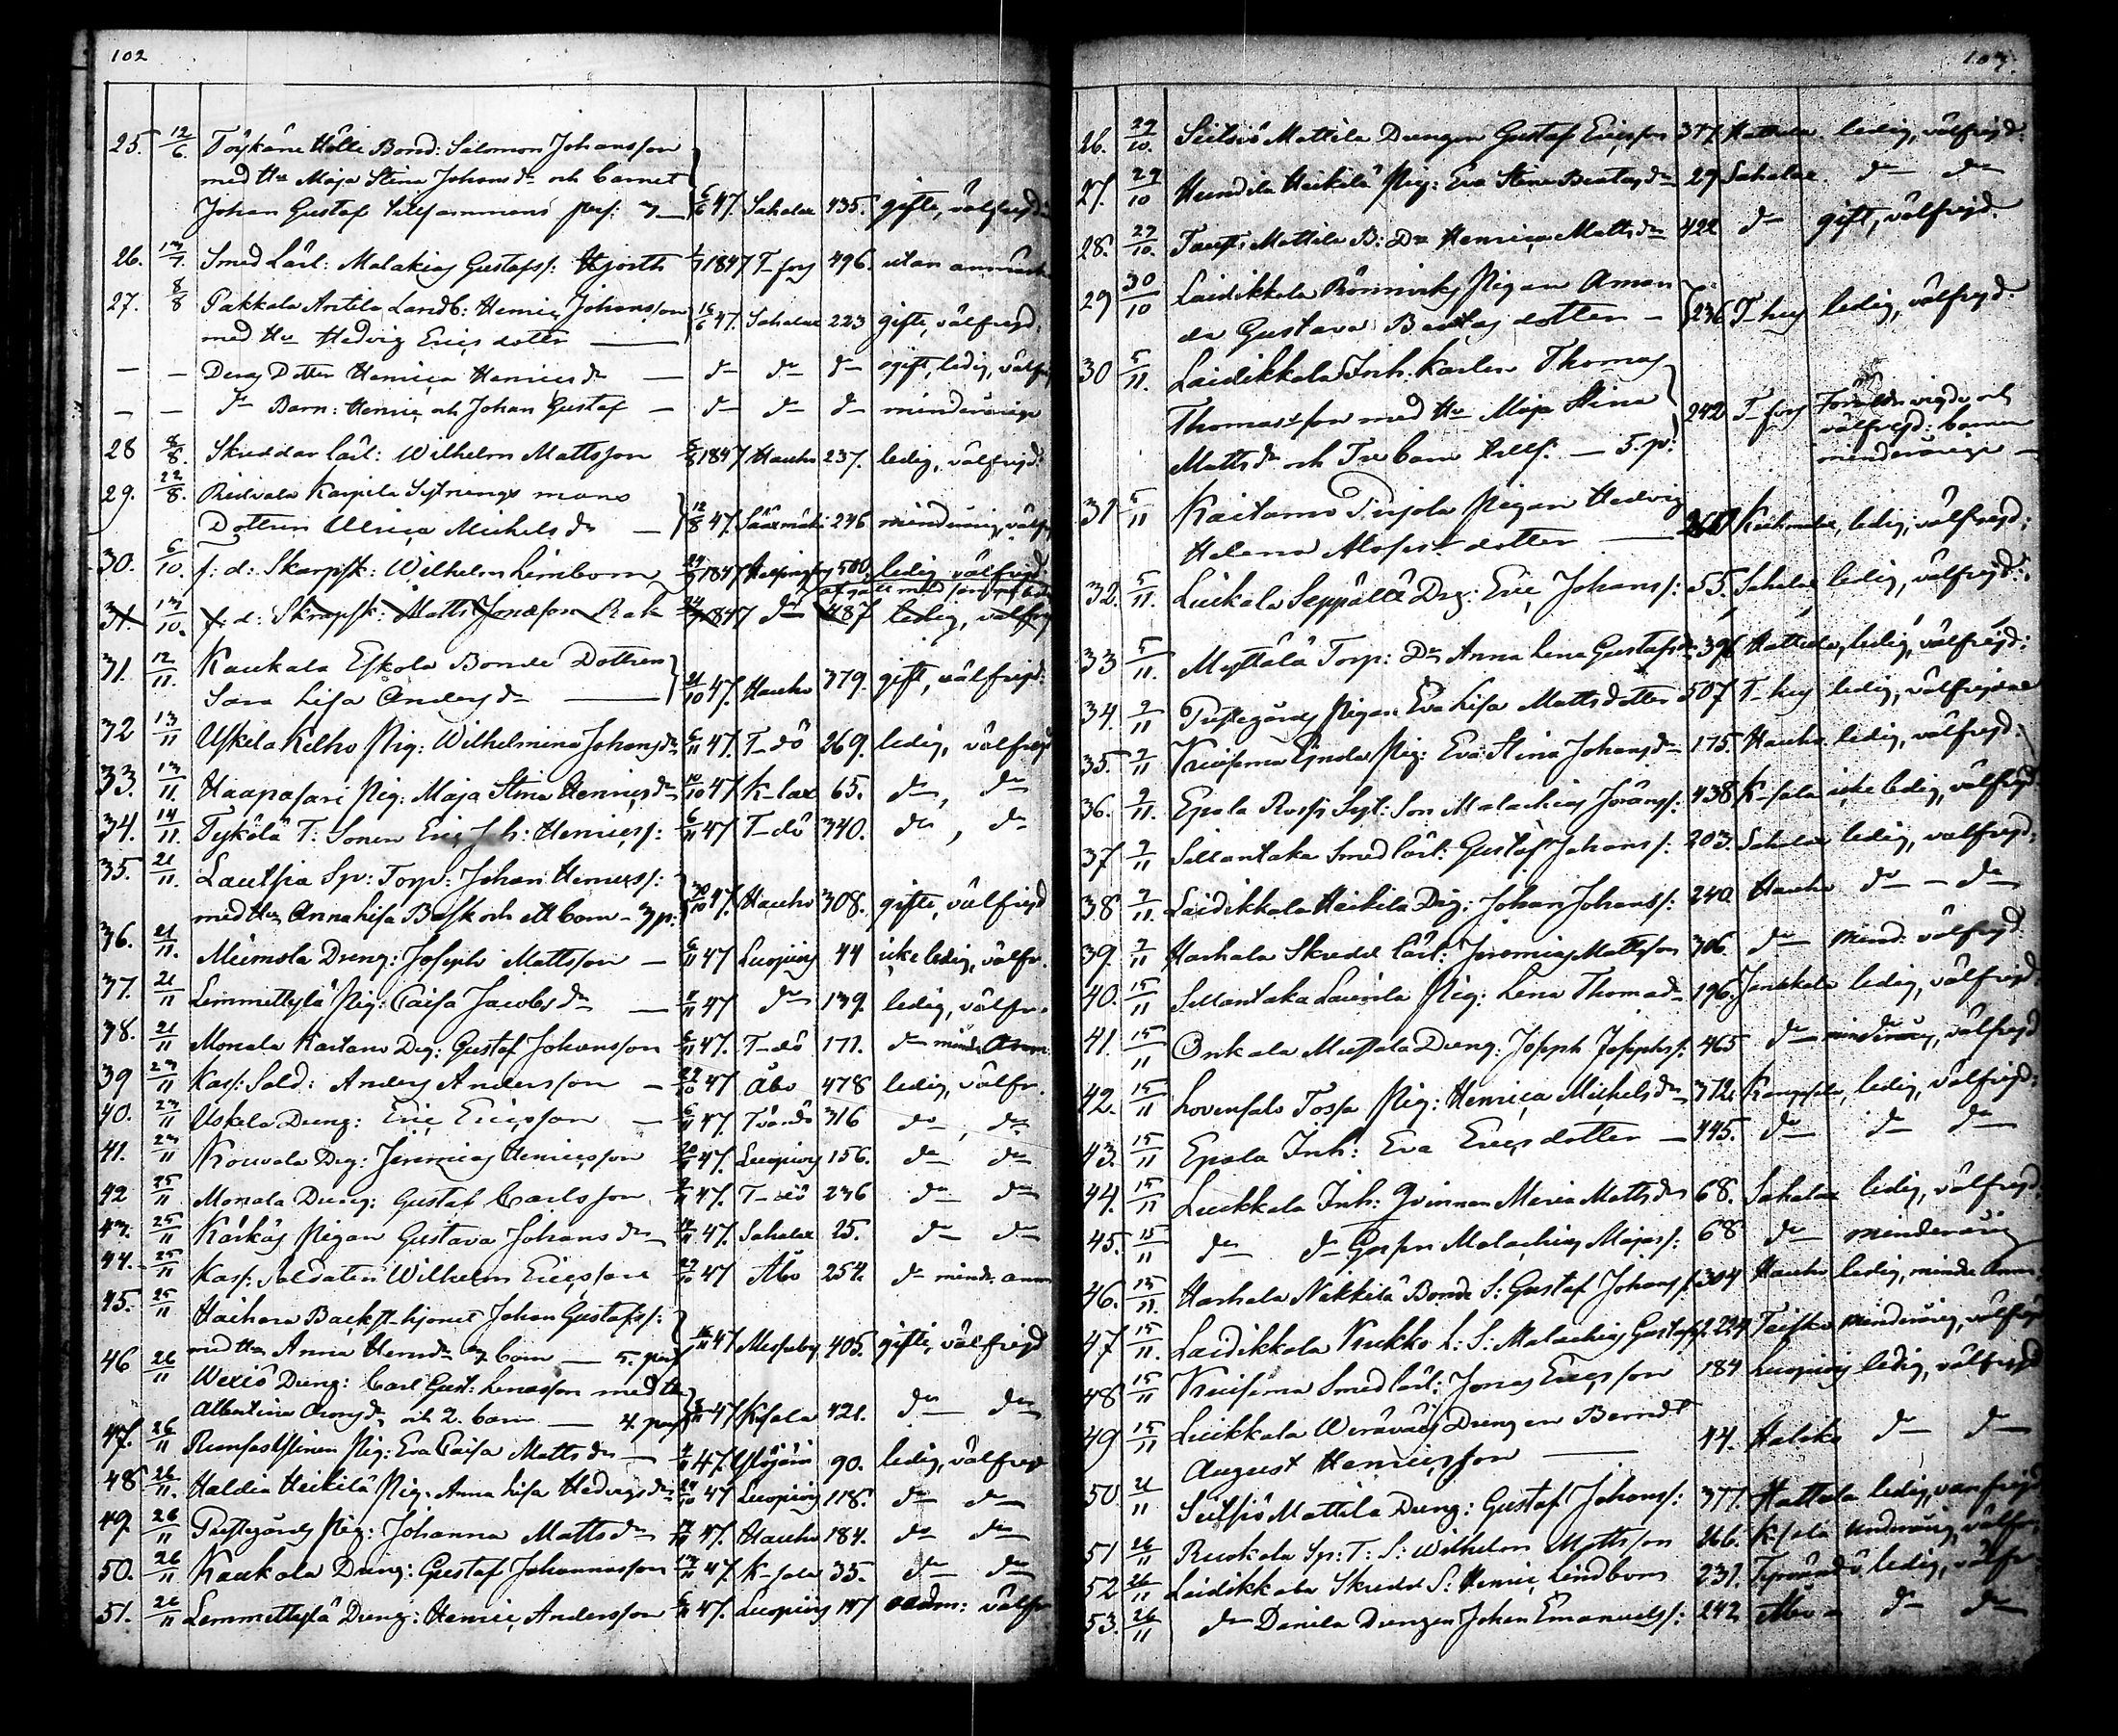 102
25. 12/6. Töykäne Hölle Bond: Salomon Johansson
med Hu Maja Stina Johansdr och barnet
Johan Gustaf tillsammans pers: 3 — 6/6 47. Sahalax 435. gifte, välfrejd:
26. 13/7. Smed Lärl: Malakias Gustafss: Hjorth 1/7 1847 T-fors 496. utan anmärk
27. 8/8 Pakkala Antila Landb: Henric Johansson
med Hu Hedvig Ericsdotter — 16/6 47. Sahalax 223 gifte, välfrejd:
— — Deras Dotter Henrica Henricsdr — do do do ogift, ledig, välfr
— — do Barn: Henric och Johan Gustaf — do do do minderårige
28 8/8. Skräddar lärl: Wilhelm Mattsson 8/8 1847 Hauho 237. ledig, välfrejd:
29. 22/8. Karpila Sytnings mans
Dottren Ulrica Michelsdr — 12/8 47. Sääxmäki 246 minderårig, välfr
30. 6/10. f: d: Skarpsk: Wilhelm Limbom 1847 Helsingfors 500, ledig välfrejd
31. 13/10. f: d: Skarpsk: Matts Jonasson Rak 1847 do 487 ledig, välfrejd
31. 12/11. Kaukala Eskola Bonde Dottren
Sara Lisa Andersdr — 21/10 47. Hauho 379. gift, välfrejd:
32 13/11 Uskela Kelho Pig: Wilhelmina Johansdr 6/11 47. T-dö 269. ledig, välfrejd
33. 13/11. Haapasari Pig: Maja Stina Henricsdr 10/10 47 K-lax 65. do, do
34. 14/11. Tykölä T: Sonen Eric Joh: Henricss: 6/11 47 T-dö 340. do, do
35. 21/11. Lautsia Sp: Torp: Johan Henricss:
med Hu Anna Lisa Bask och ett barn - 3 p: 30/10 47. Hauho 308. gifte, välfrejd
36. 21/11. Meimola Dreng: Joseph Mattsson — 6/11 47 Luopiois 44 icke ledig, välfr.
37. 21/11 Lemmettylä Pig: Caisa Jacobsdr — 7/11 47 do 139. ledig, välfr.
38. 21/11 Monala Kaitans Dg: Gustaf Johansson 6/11 47. T-dö 171. do mindr Anm:
39 23/11 Kas: Sold: Anders Andersson — 29/10 47 Åbo 478 ledig, välfr.
40. 23/11 Uskela Dreng: Eric Ericsson — 6/11 47. 316 do, do
41. 23/11 Kouvala Dg: Jeremias Henricsson 47. Luopiois 156. do do
42 25/11 Monala Dreng: Gustaf Carlsson 47. T-dö 236 do do
43. 25/11 Kärkäs Pigan Gustava Johansdr 47. Sahalax 25. do do
44. 25/11 Kas: Soldaten Wilhelm Ericsson 29/10 47 Åbo 254. do mindr. anm
45. 25/11 Haihara Backst-hjonet Johan Gustafss:
med Hu Anna Henrsdr 3 barn — 5. pers 47 Messuby 405. gifte, välfrejd
46 26/11 Wexiö Dreng: Carl Gust: Lenasson med Hu
Albertina och 2. barn — 4. pers 47 K-sala 421. do do
47. 26/11 Pig: Eva Caisa Mattsdr — 47. Ylöjärvi 90. ledig, välfrejd
48 26/11. Haldia Heikilä Pig. Anna Lisa Hedvigsdr 29/10 47 Luopiois 118. do do
49. 26/11 Prestegårds Pig: Johanna Mattsdr 47. Hauho 184. do do
50. 26/11 Kaukola Dreng: Gustaf Johannesson 47. K-sala 35. do do
51. 26/11 Lemmettylä Dreng: Henric Andersson 47. Luopiois 147 välfr
103.
26. 29/10. Seitsiö Mattila Drengen Gustaf Ericsson 377. Hattula ledig, välfrejd:
27. 29/10 Hundila Heikilä Pig: Eva Stina Beatasdr 29 Sahalax do do
28. 29/10. Mattila B: Dr Henrica Mattsdr 422 do gift, välfrejd.
29 30/10 Laidikkala Rönnviks Pigan Aman
da Gustava Beatas dotter — 236 T-hus ledig, välfrejd.
30 5/11. Laidikkala Inh. Karlen Thomas
Thomasson med Hu Maja Stina
Mattsdr och Tre barn tills: — 5. p: 242 T-fors Föräldr. vigde och
välfrejd: barnen
minderårige —
31 5/11 Kaitamo Pujola Pigan Hedvig
Helena dotter — 260 Kuhmalax, ledig, välfrejd:
32. 5/11. Luikala Seppälä Dreg: Eric Johanss: 55. Sahalax ledig, välfrejd:
33 5/11. Myttälä Torp: Dr Anna Lena Gustafsdr 391 Hattula, ledig, välfrejd:
34. 7/11 Prestegårds Pigan Eva Lisa Mattsdotter 507 T-hus ledig, välfrejdad
35. 7/11 Pig: Eva Stina Johansdr 175. Hauho. ledig, välfrejd:
36. 9/11. Epala Rossi Syt: Son Malachias Jöranss: 438 K-sala icke ledig, välfrejd
37 7/11 Sillantaka Smed lärl: Gustaf Johanss: 203. Sahalax ledig, välfrejd:
38 7/11. Laidikkala Heikila Dreg: Johan Johanss: 240. Hauho do — do
39. 7/11 Harhala Skredd lärl: Jeremias Mattsson 306. do mind: välfrejd
40. 15/11 Sillantaka Laurila Pig: Lena Thomasdr 196. Janakkala ledig, välfrejd:
41. 15/11 Onkala Dreng: Joseph Josephss: 465 do minderårig, välfrejd
42. 15/11 Lovensalo Tossa Pig: Henrica Michelsdr 312. Kangasala, ledig, välfrejd:
43. 15/11 Epala Inh: Eva Ericsdotter — 445. do do do
44. 15/11 Luikkala Inh: Qvinnan Maria Mattsdr 68. Sahalax ledig, välfrejd:
45. 15/11 do do Gossen Malachias Majass: 68 do minderårig
46. 15/11. Harhala Nikkilä Bonde S: Gustaf Johanss 304 Hauho ledig, mindre Anm:
47 15/11. Laidikkala Kukko L: S: Malachias Gustafss 224 Teisko minderårig, välfrejd
48 15/11 Smed lärl: Jonas Ericsson 184 Luopiois ledig, välfrejd
49 15/11 Luikkala Drengen Berndt
August Henricsson — 44. Haliko do do
50. 21/11 Seitsiö Mattila Dreng: Gustaf Johanss: 377. Hattula ledig, vanfrejd
51 26/11 Ruokola Sp: T: S: Wilhelm Mattsson 266. K-sala minderårig, välfr
52 26/11 Laidikkala Skredd S: Henric Lindbom 231. ledig, välfr
53. 26/11 do Danila Drengen Johan Emanuelss: 242 Åbo do do